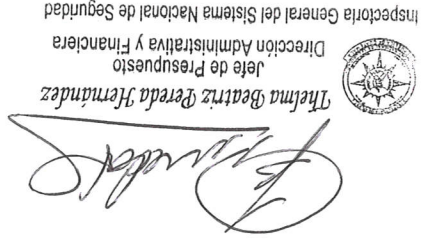 Thelma Beatriz Pereda Hernández
Jefe de Presupuesto
Dirección Administrativa y Financiera
Inspectoría General del Sistema Nacional de Seguridad